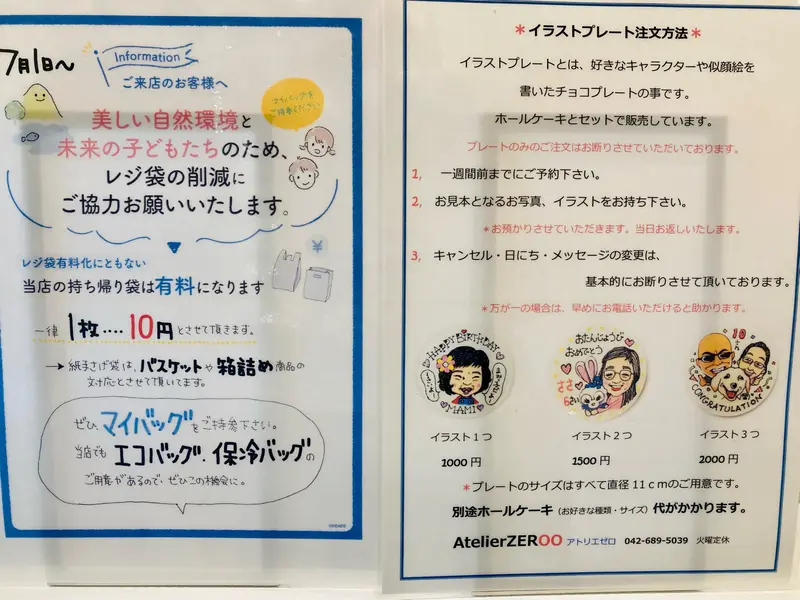 7月1日～
Information
ご来店のお客様へ
マイバッグを
ご持参ください
美しい自然環境と
未来の子どもたちのため、
レジ袋の削減に
ご協力お願いいたします。
¥
レジ袋有料化にともない
当店の持ち帰り袋は有料になります
一律 1枚‥‥10円とさせて頂きます。
→ 紙手さげ袋は、バスケットや箱詰め商品の
み対応とさせて頂いてます。
ぜひ、マイバッグをご持参下さい。
当店でも エコバッグ、保冷バッグの
ご用意があるので、ぜひこの機会に。
＊イラストプレート注文方法＊
イラストプレートとは、好きなキャラクターや似顔絵を
書いたチョコプレートの事です。
ホールケーキとセットで販売しています。
プレートのみのご注文はお断りさせていただいております。
1, 一週間前までにご予約下さい。
2, お見本となるお写真、イラストをお持ち下さい。
＊お預かりさせていただきます。当日お返しいたします。
3, キャンセル・日にち・メッセージの変更は、
基本的にお断りさせて頂いております。
＊万が一の場合は、早めにお電話いただけると助かります。
HAPPY BIRTHDAY
MAMI
おたんじょうび
おめでとう
ささ
6さい
10
CONGRATULATION
イラスト1つ
イラスト2つ
イラスト3つ
1000円
1500円
2000円
＊プレートのサイズはすべて直径11cmのご用意です。
別途ホールケーキ（お好きな種類・サイズ）代がかかります。
AtelierZEROO アトリエゼロ 042-689-5039 火曜定休